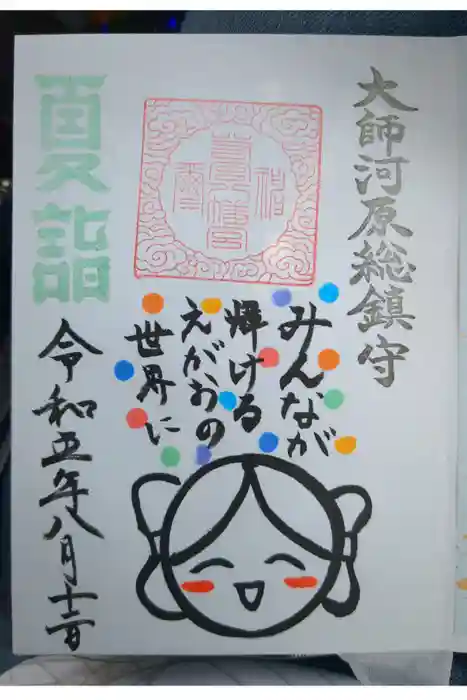 大師河原総鎮守
みんなが
輝ける
えがおの
世界に
夏詣
令和五年八月